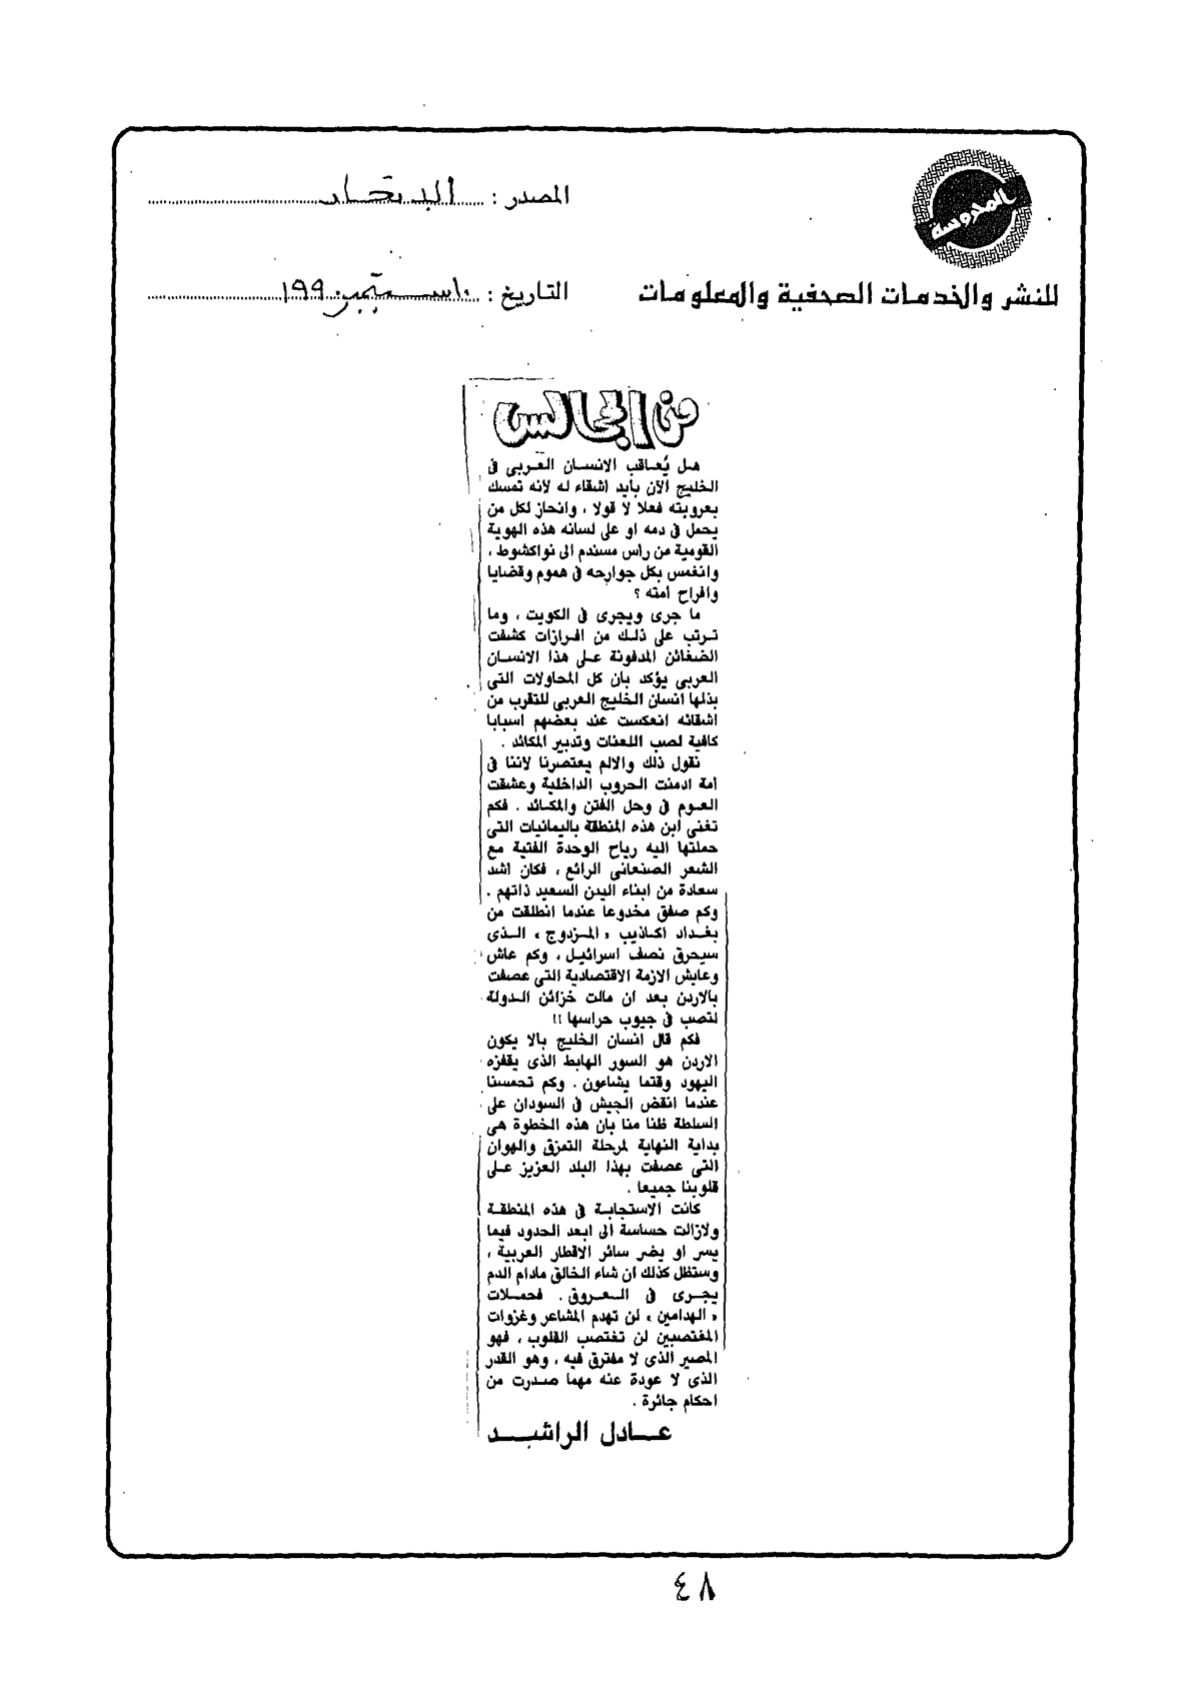 المدوسة
للنشر والخدمات الصحفية والمعلومات
المصدر :
التاريخ : ١٠ سبتمبر ١٩٩٠
من المجالس
هل يُعاقب الانسان العربى فى
الخليج الآن بأيد اشقاء له لأنه تمسك
بعروبته فعلا لا قولا ، وانحاز لكل من
يحمل فى دمه او على لسانه هذه الهوية
القومية من رأس مسندم الى نواكشوط ،
وانغمس بكل جوارحه فى هموم وقضايا
وافراح امته ؟
ما جرى ويجرى فى الكويت ، وما
ترتب على ذلك من افرازات كشفت
الضغائن المدفونة على هذا الانسان
العربى يؤكد بأن كل المحاولات التى
بذلها انسان الخليج العربى للتقرب من
اشقائه انعكست عند بعضهم اسبابا
كافية لصب اللعنات وتدبير المكائد .
نقول ذلك والالم يعتصرنا لاننا فى
أمة ادمنت الحروب الداخلية وعشقت
العوم فى وحل الفتن والمكائد . فكم
تغنى ابن هذه المنطقة باليمانيات التى
حملتها اليه رياح الوحدة الفتية مع
الشعر الصنعانى الرائع ، فكان اشد
سعادة من ابناء اليمن السعيد ذاتهم .
وكم صفق مخدوعا عندما انطلقت من
بغداد اكاذيب « المزدوج » الذى
سيحرق نصف اسرائيل ، وكم عاش
وعايش الازمة الاقتصادية التى عصفت
بالاردن بعد ان مالت خزائن الدولة
لتصب فى جيوب حراسها !!
فكم قال انسان الخليج بالا يكون
الاردن هو السور الهابط الذى يقفزه
اليهود وقتما يشاءون . وكم تحمسنا
عندما انقض الجيش فى السودان على
السلطة ظنا منا بان هذه الخطوة هى
بداية النهاية لمرحلة التمزق والهوان
التى عصفت بهذا البلد العزيز على
قلوبنا جميعا .
كانت الاستجابة فى هذه المنطقة
ولازالت حساسة الى ابعد الحدود فيما
يسر او يضر سائر الاقطار العربية ،
وستظل كذلك ان شاء الخالق مادام الدم
يجرى فى العروق . فحملات
« الهدامين » لن تهدم المشاعر وغزوات
المغتصبين لن تغتصب القلوب ، فهو
المصير الذى لا مفترق فيه ، وهو القدر
الذى لا عودة عنه مهما صدرت من
احكام جائرة .
عادل الراشد
٤٨